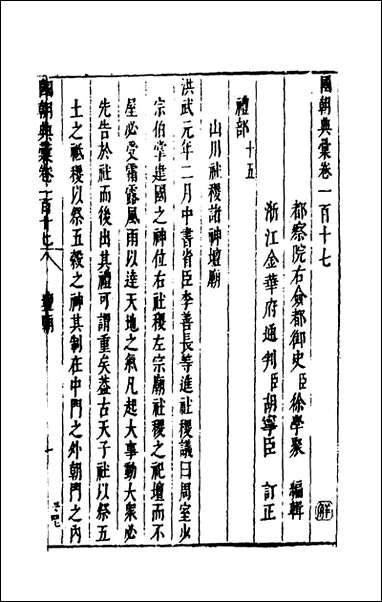 國朝典彙卷一百十七
都察院右僉都御史臣徐學聚　編輯
浙江金華府通判臣胡寧臣　訂正
禮部十五
山川社稷諸神壇廟
洪武元年二月中書省臣李善長等進社稷議曰周室少
宗伯掌建國之神位右社稷左宗廟社稷之祀壇而不
屋必受霜露風雨以達天地之氣凡起大事動大眾必
先告於社而後出其禮可謂重矣葢古天子社以祭五
土之祗稷以祭五穀之神其制在中門之外朝門之內
國朝典彙卷一百十七
壇廟
一